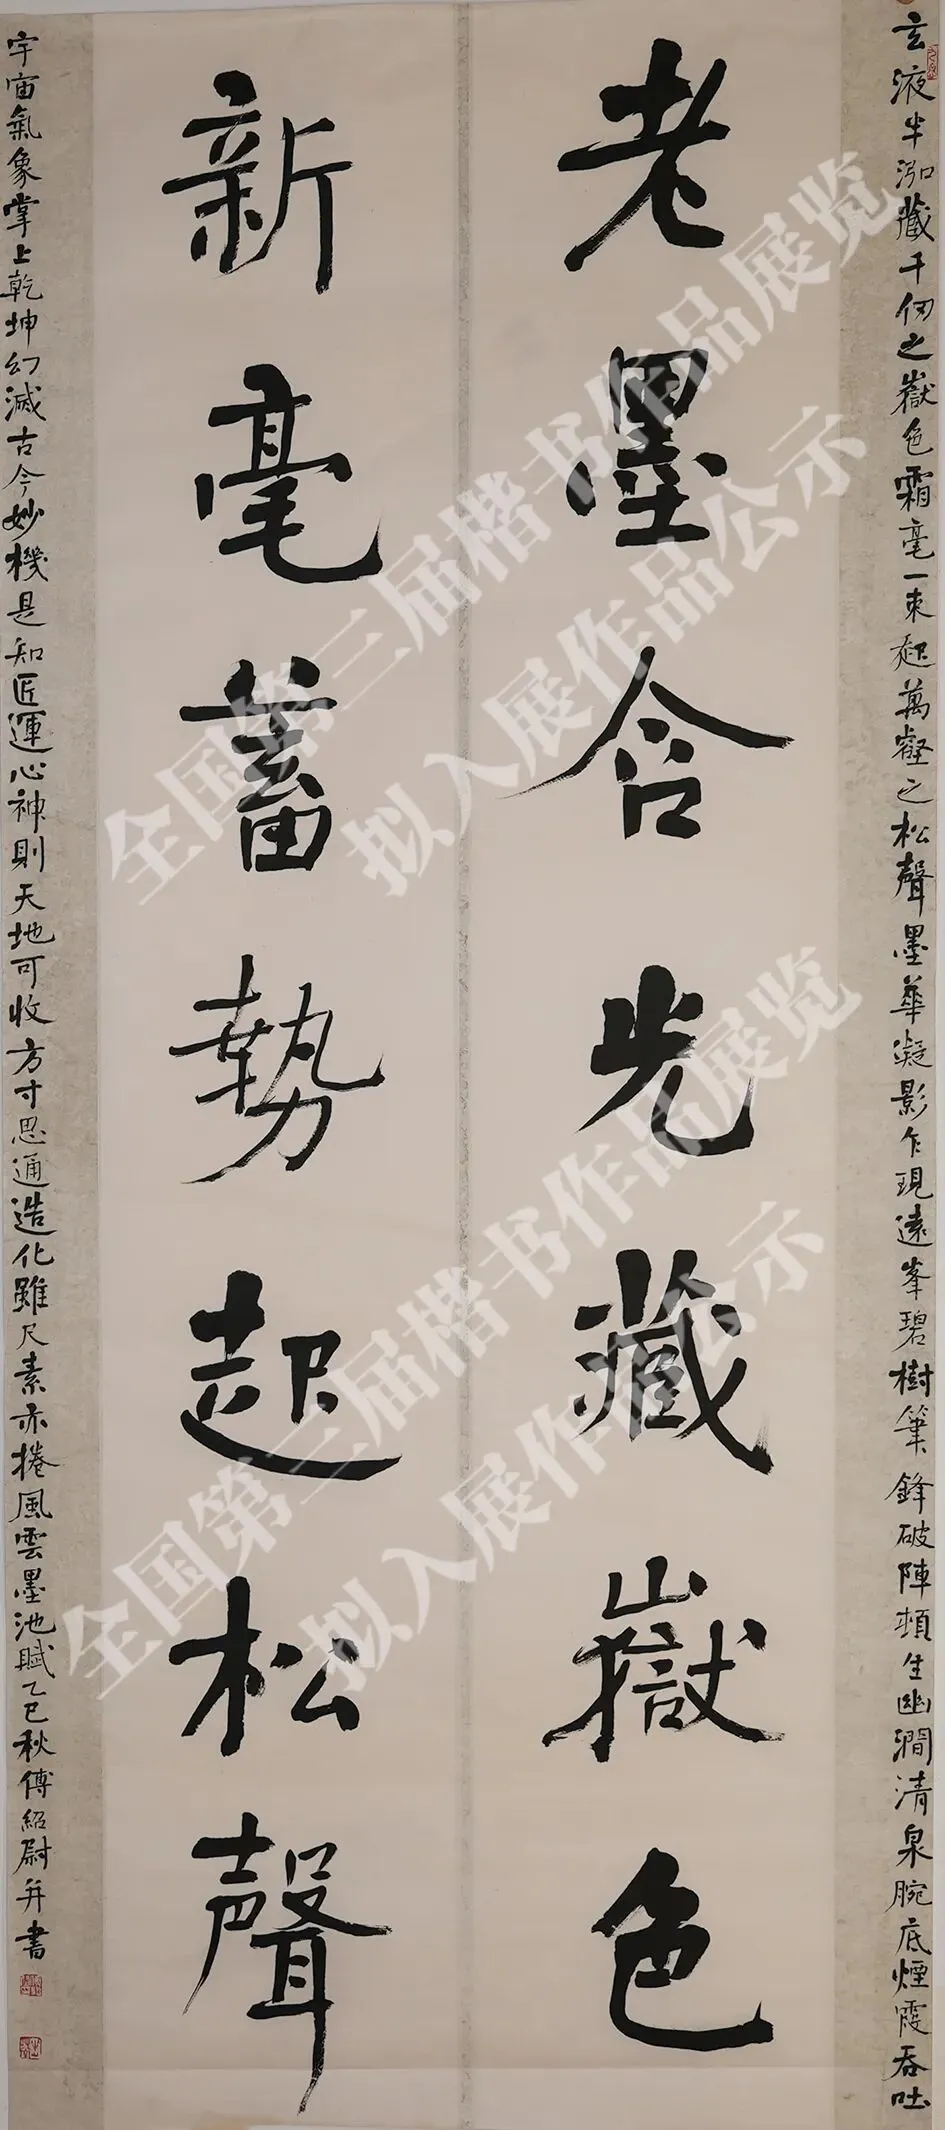 玄液半泓藏千仞之嶽色霜毫一束起萬壑之松聲墨華凝影乍現遠峯碧樹筆鋒破陣頓生幽澗清泉腕底煙霞吞吐
老墨含光藏嶽色
新毫蓄勢起松聲
宇宙氣象掌上乾坤幻滅古今妙機是知匠運心神則天地可收方寸思通造化雖尺素亦捲風雲墨池賦乙巳秋傅紹尉并書
全国第三届楷书作品展览
拟入展作品公示
全国第三届楷书作品展览
拟入展作品公示